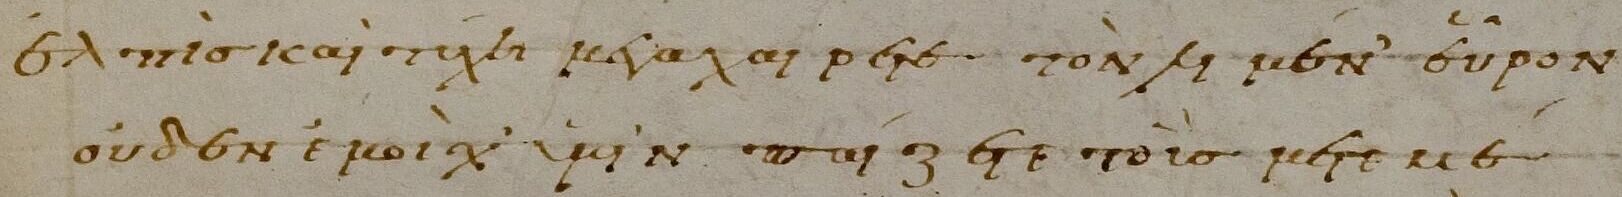 ἐλπὶσ καὶ τύχη μέγα χαίρετε τὸν λιμέν' εὗρον
οὐδὲν ἐμοὶ χ' ὑμῖν παίζετε τοὺσ μετ' ἐμέ